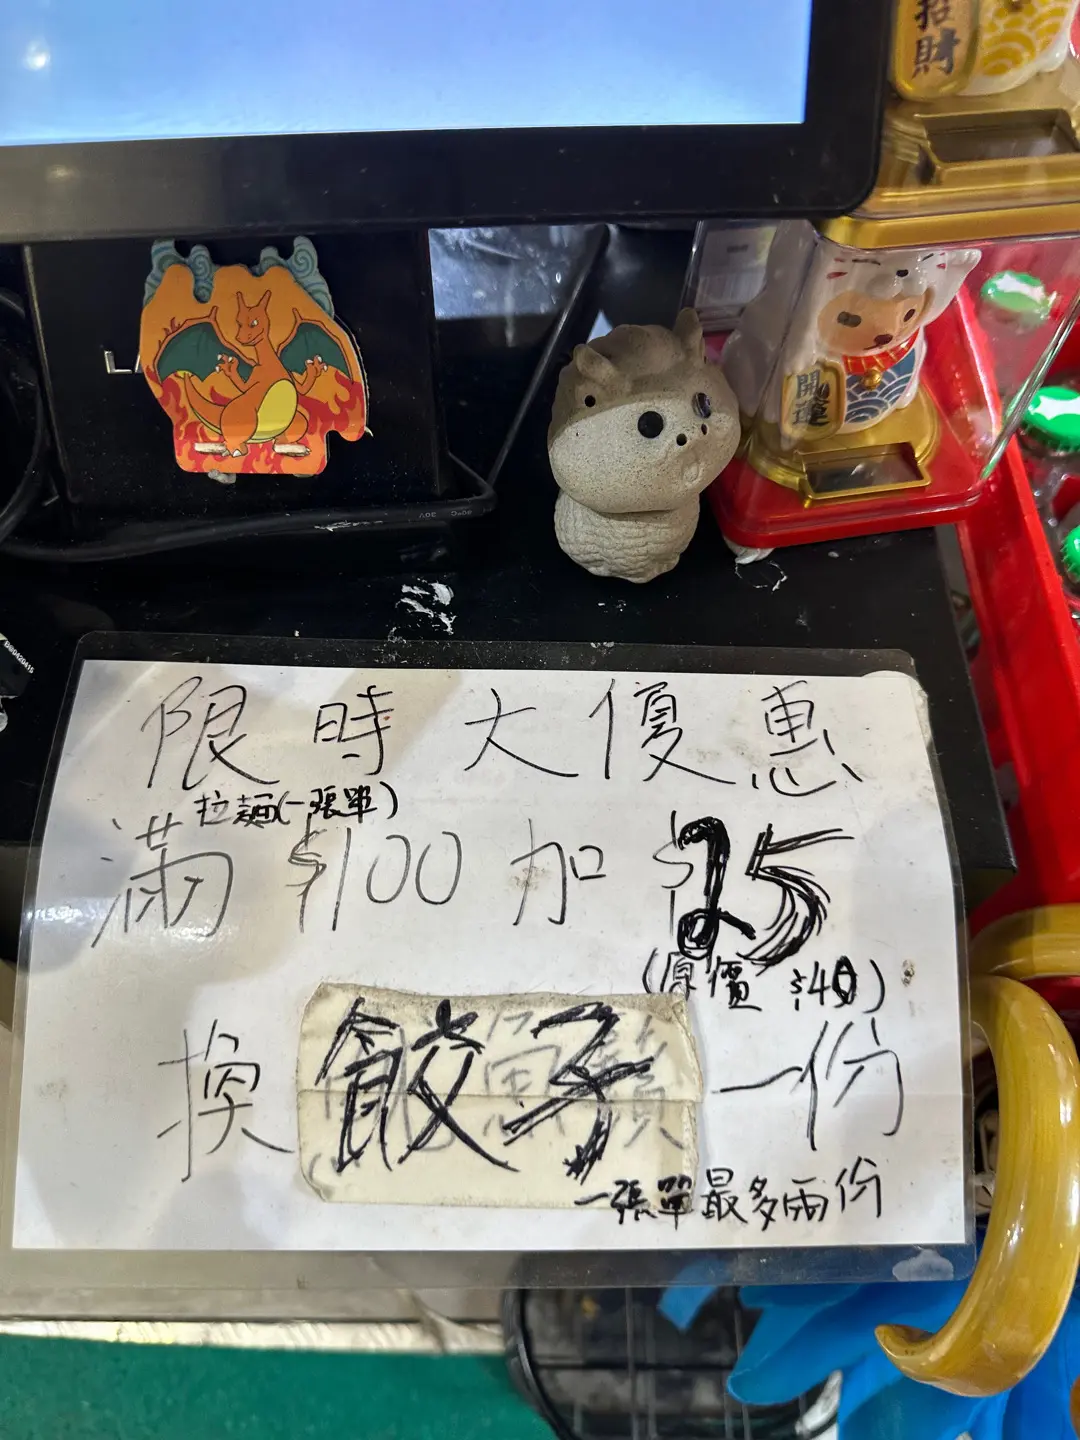 招
財
開
運
限時大優惠
拉麵(一張單)
滿$100加$25
(原價 $40)
換餃子一份
一張單最多兩份